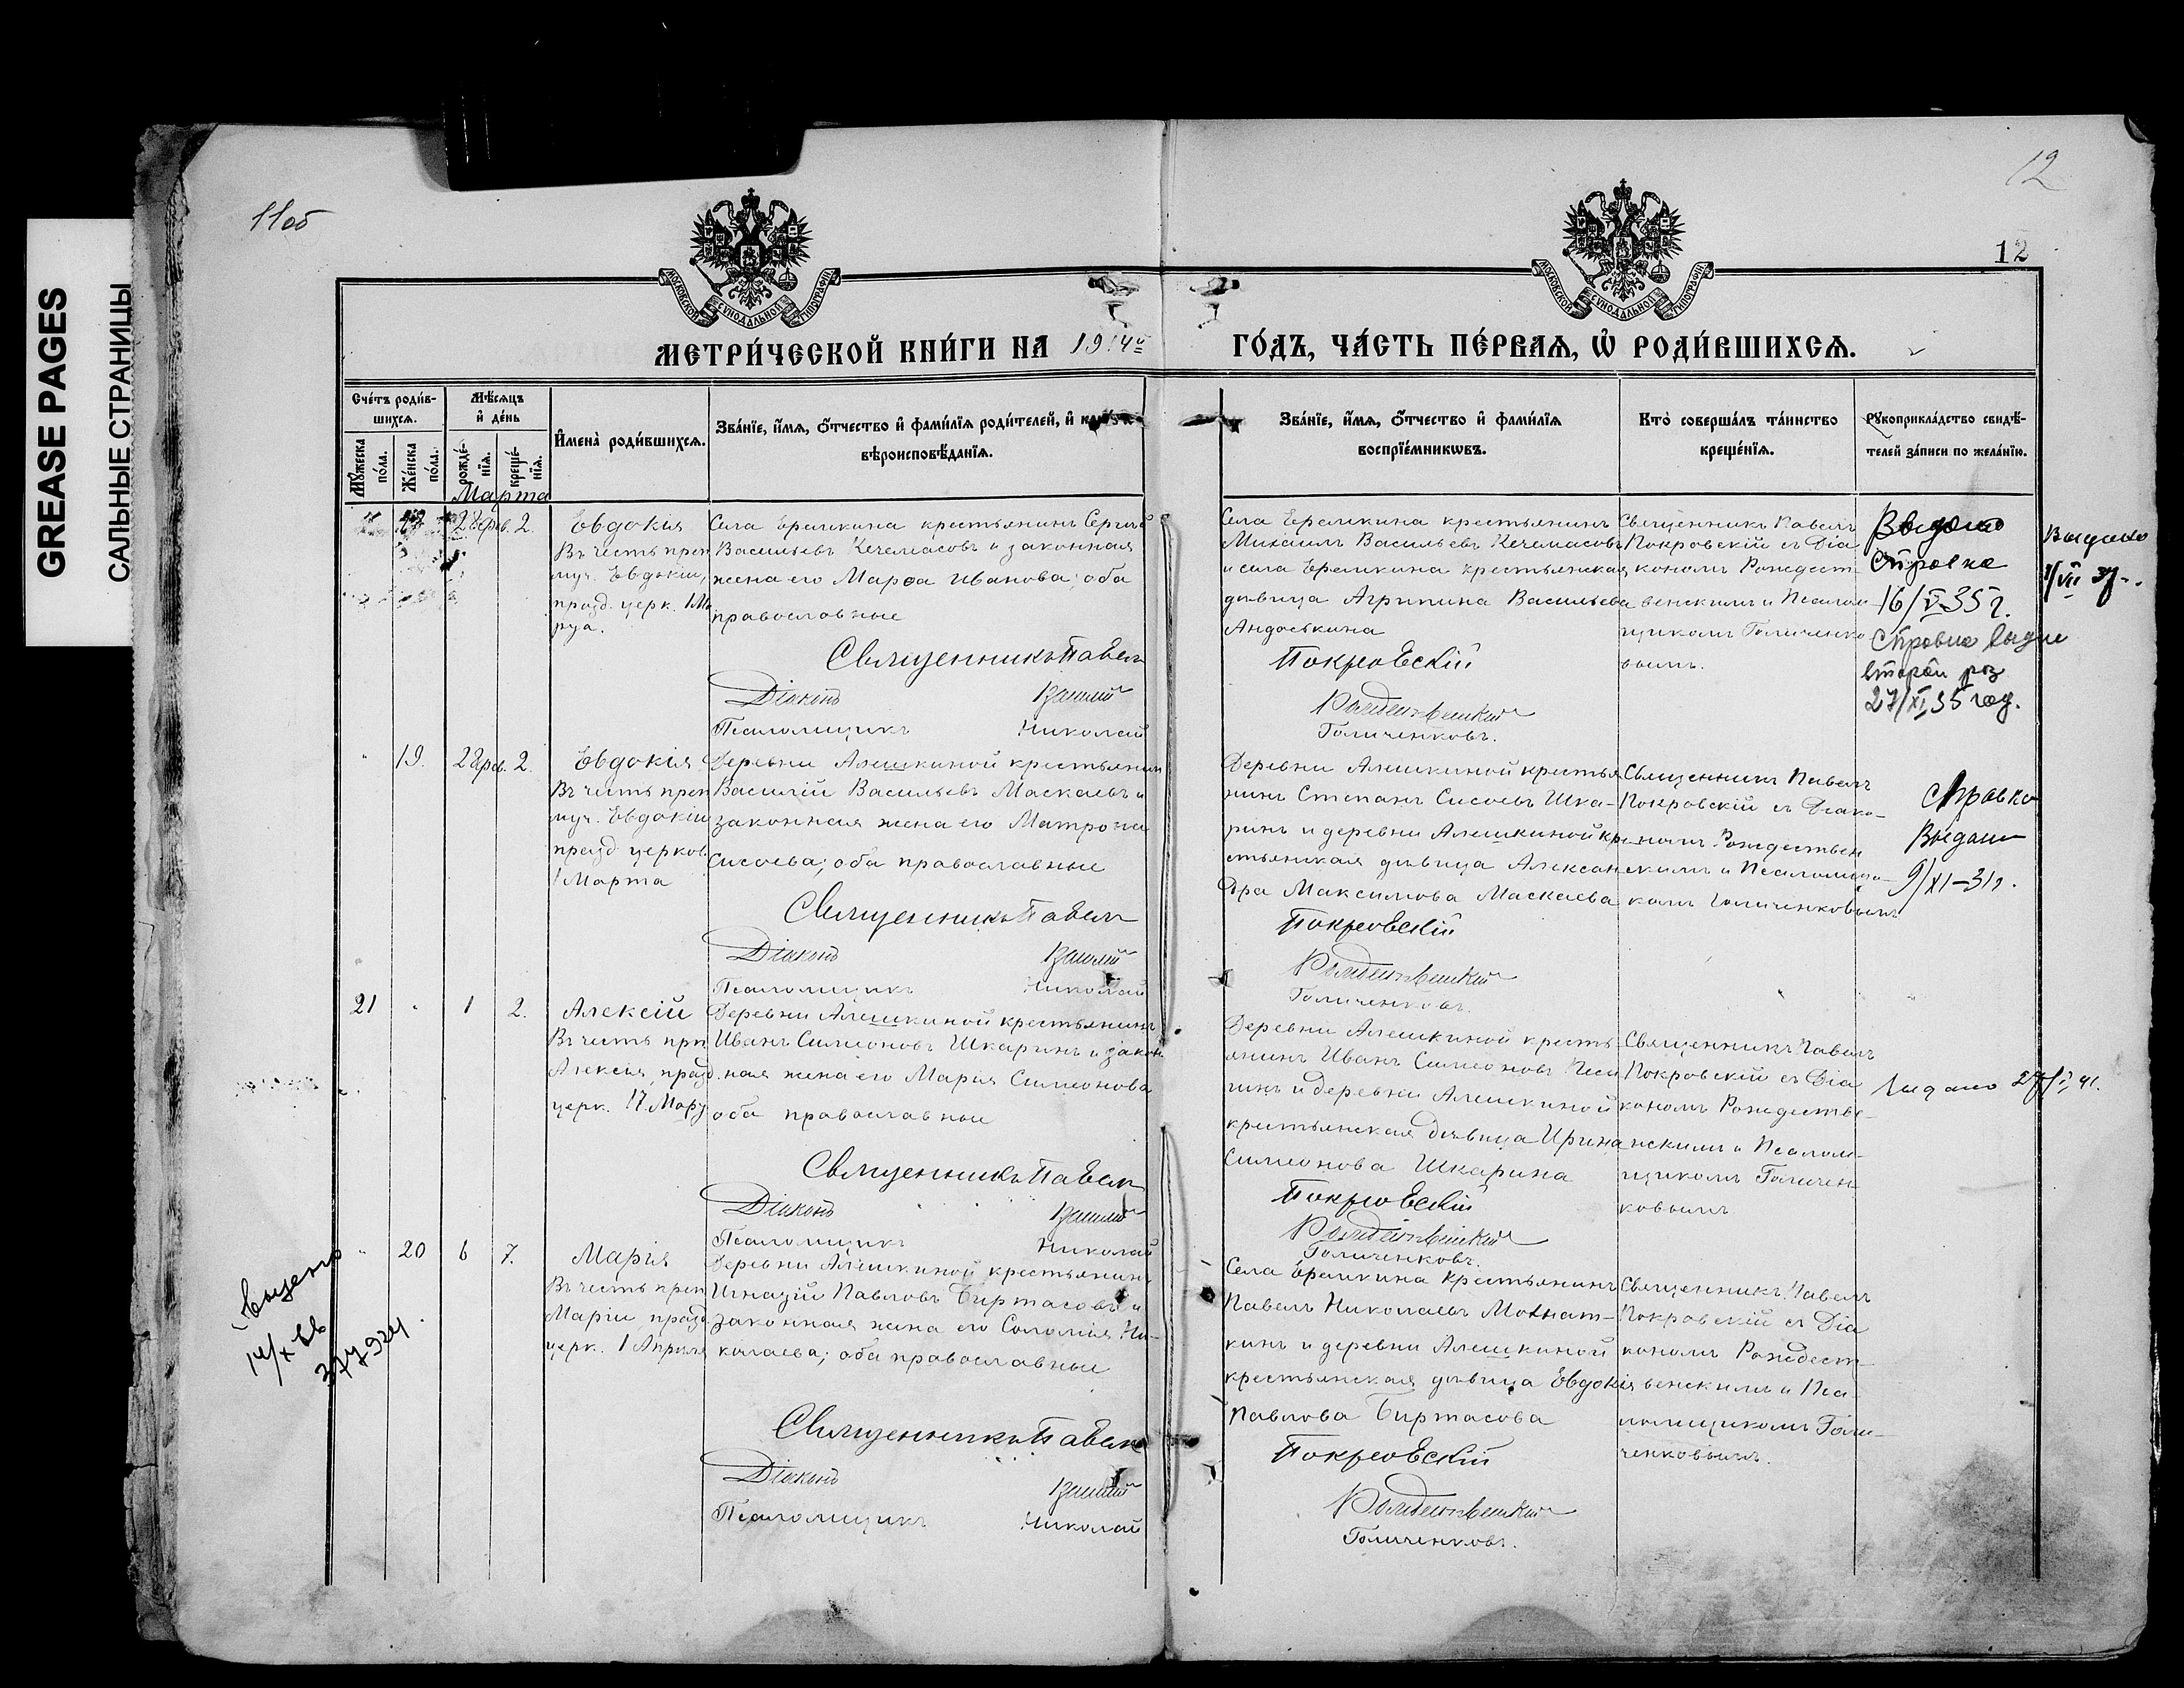 GREASE PAGES
САЛЬНЫЕ СТРАНИЦЫ
11об
12
12
МОСКОВСКОЙ СѴНОДАЛЬНОЙ ТИПОГРАФІИ
МОСКОВСКОЙ СѴНОДАЛЬНОЙ ТИПОГРАФІИ
МЕТРИ́ЧЕСКОЙ КНИ́ГИ НА 1914й
ГО́ДЪ, ЧА́СТЬ ПЕ́РВАѦ, Ѡ҆ РОДИ́ВШИХСѦ.
Сче́тъ роди́в-
шихсѧ.
Мѣ́сѧцъ
и҆ де́нь
Мꙋ́жеска
по́ла.
Же́нска
по́ла.
рожде́-
нїѧ.
креще́-
нїѧ.
И҆мена̀ роди́вшихсѧ.
Зва́нїе, и҆́мѧ, о҆́тчество и҆ фами́лїѧ роди́телей, и҆
вѣроисповѣ́данїѧ.
Зва́нїе, и҆́мѧ, о҆́тчество и҆ фами́лїѧ
воспрїе́мникѡвъ.
Кто̀ соверша́лъ та́инство
креще́нїѧ.
Рꙋкоприкла́дство свидѣ́-
телей за́писи по жела́нїю.
Марта
28 фев. 2.
Евдокія
Въ честь преп
муч. Евдокіи,
празд. церк. 1 Ма
рта.
Села Еремкина крестьянинъ Сергѣй
Васильевъ Кечемасовъ и законная
жена его Марѳа Иванова; оба
православные
Священникъ Павелъ
Діаконъ Василій
Псаломщикъ Николай
Села Еремкина крестьянинъ
Михаилъ Васильевъ Кечемасовъ
и села Еремкина крестьянская
дѣвица Агрипина Васильева
Андоськина
Покровскій
Рождественскій
Голиченковъ.
Священникъ Павелъ
Покровскій съ Діа
кономъ Рождест-
венскимъ и Псалом
щикомъ Голиченко
вымъ.
Выдано
Справка
16/V-35 г.
Справка выдна
второй раз
27/XI 35 год.
Выдано
1/VII 37-.
" 19. 28 фев. 2.
Евдокія.
Въ честь преп
муч. Евдокіи
празд церков.
1 Марта
Деревни Алешкиной крестьянинъ
Василій Васильевъ Маскаевъ и
законная жена его Матрона
Сисоева; оба православные
Священникъ Павелъ
Діаконъ Василій
Псаломщикъ Николай
Деревни Алешкиной крестья
нинъ Степанъ Сисоевъ Шка-
ринъ и деревни Алешкиной кре-
стьянская дѣвица Алексан
дра Максимова Маскаева
Покровскій
Рождественскій
Голиченковъ.
Священникъ Павелъ
Покровскій съ Діако-
номъ Рождествен
скимъ и Псаломщи-
комъ Голиченковымъ
Справка
Выдана
9/XI-31 г.
21 " 1 2.
Алексій
Въ честь прп.
Алексія, празд.
церк. 17 Мар.
Деревни Алешкиной крестьянинъ
Иванъ Симеоновъ Шкаринъ и закон
ная жена его Марія Симеонова
оба православные
Священникъ Павелъ
Діаконъ Василій
Псаломщикъ Николай
Деревни Алешкиной кресть
янинъ Иванъ Симеоновъ
и деревни Алешкиной
крестьянская дѣвица Ирина
Симеонова Шкарина
Покровскій
Рождественскій
Голиченковъ.
Священникъ Павелъ
Покровскій съ Діа
кономъ Рождестве-
нскимъ и Псалом-
щикомъ Голичен
ковымъ
Выдано 27/I 41.
" 20 6 7.
Марія
Въ честь преп
Маріи, празд
церк. 1 Апреля
Деревни Алешкиной крестьянинъ
Игнатій Павловъ Биртасовъ и
законная жена его Соломія Ни-
колаева; оба православные
Священникъ Павелъ
Діаконъ Василій
Псаломщикъ Николай
Села Еремкина крестьянинъ
Павелъ Николаевъ Мохнат-
кинъ и деревни Алешкиной
крестьянская дѣвица Евдокія
Павлова Биртасова
Покровскій
Рождественскій
Голиченковъ.
Священникъ Павелъ
Покровскій съ Діа
кономъ Рождест-
венскимъ и Пса-
ломщикомъ Голи-
ченковымъ.
Выдано
377924.